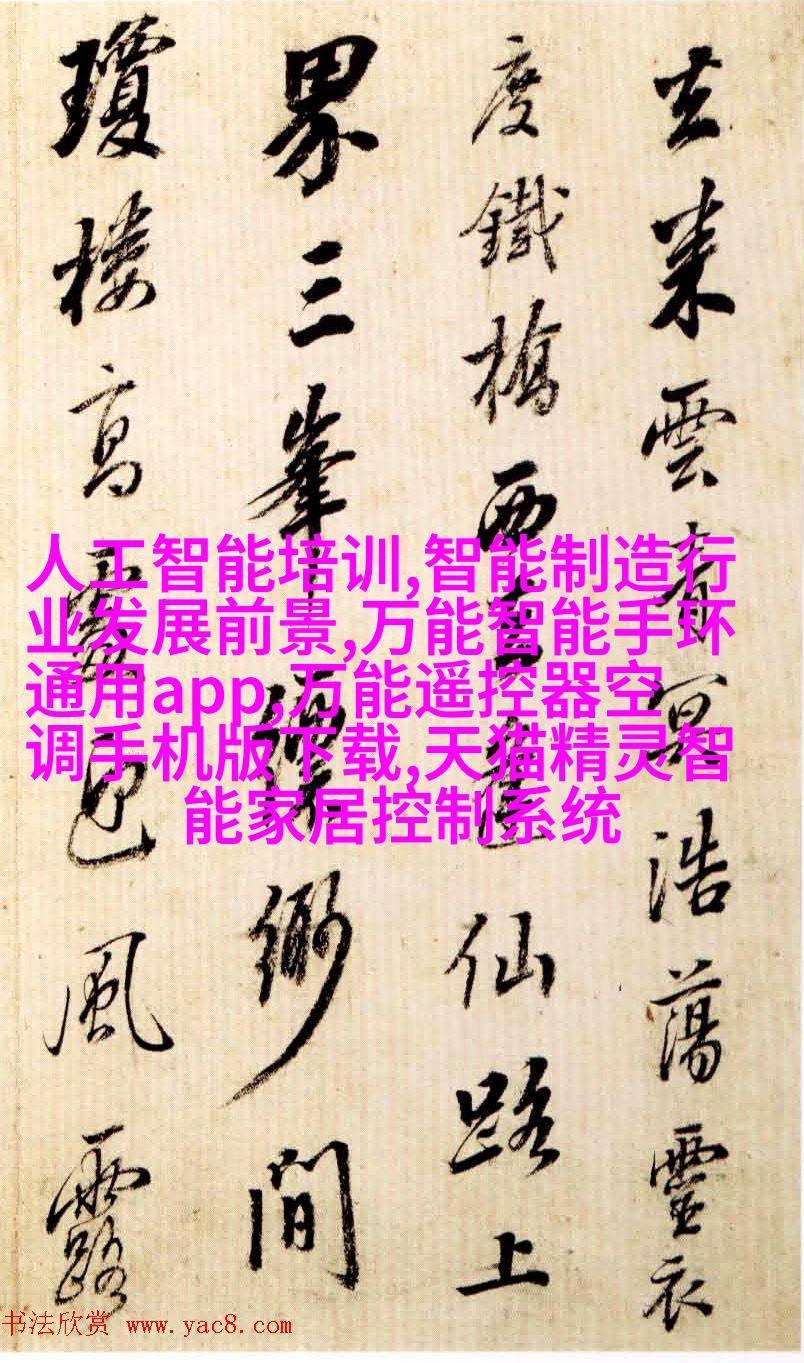 去来雲冥浩蕩靈衣
度鐵橋西仙路上
界三峯縹緲間
瓊樓高風露
人工智能培训,智能制造行
业发展前景,万能智能手环
通用app,万能遥控器空
调手机版下载,天猫精灵智
能家居控制系统
书法欣赏 www.yac8.com